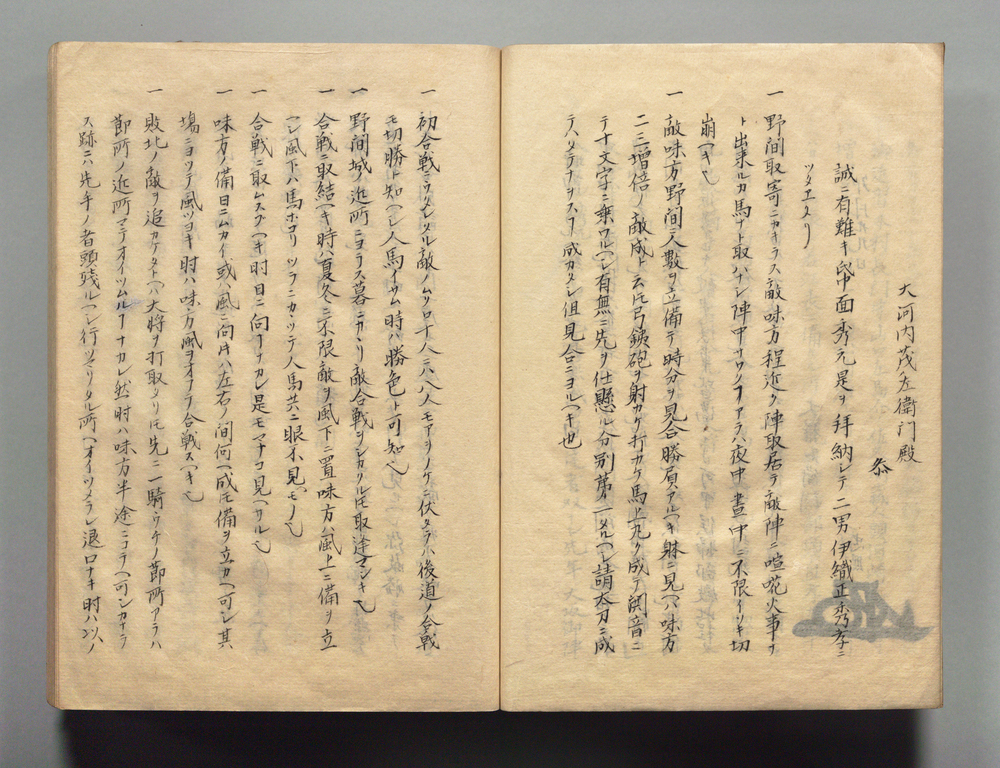 大河内茂左衛門殿
参
誠ニ有難キ御書面秀元是ヲ拝納シテ二男伊織正秀存ニ
ツタエタリ
一 野間取寄ニカキラス敵味方程近ク陣取居テ敵陣ニ喧𠵅火事ヲ
ト出来ルカ馬ナト取ハナシ陣中サワクアラハ夜中昼中ニ不限イツキ切
崩ヘキ也
一 敵味方野間ニ人数ヲ立備テ時分ヲ見合勝負アルヘキ躰ニ見ヘハ味方
二三増倍ノ敵成ト云トモ弓鉄砲ヲ射カケ打カケ馬上丸ク成テ鬨音ニ
テ十文字ニ乗ワルヘシ有無ニ先ヲ仕懸ル分別第一タルヘシ請太刀ニ成
テハリテナヲスコト成カタシ但見合ニヨルヘキ也
一 初合戦ニウタレタル敵ノムクロ十人ニ八八人モアヲノケニ伏タラハ後道ノ合戦
モ切勝ト知ヘシ人馬イサム時ハ勝色ト可知也
一 野間城ノ近所ニヨラス暮ニカヽリ敵合戦ヲシカクルトモ取逢マシキ也
一 合戦ニ取結ヘキ時ハ夏冬ニ不限敵ヲ風下ニ置味方ハ風上ニ備ヲ立
ヘシ風下ハ馬ホコリ ツラニカヽツテ人馬共ニ眼不見ヘモノ也
一 合戦ニ取ムスフヘキ時日ニ向コトナカレ是モマナコ見ヘサル也
一 味方ノ備日ニムカイ或ハ風ニ向トキハ左右ノ間何ヘ成トモ備ヲ立カヘ可シ其
場ニヨツテ風ツヨキ時ハ味方風ヲオフテ合戦スヘキ也
一 敗北ノ敵ヲ追カケタトヘハ大将ヲ打取タリトモ先ニ一騎ウチノ節所アラハ
節所ノ近所マテオイツムルコトナカレ然時ハ味方半途ニコラヘ可シカナラ
ス跡ニハ先手ノ者頭残ルヘシ行ツマリタル所ヘオイツメラレ退口ナキ時ハ以ノ